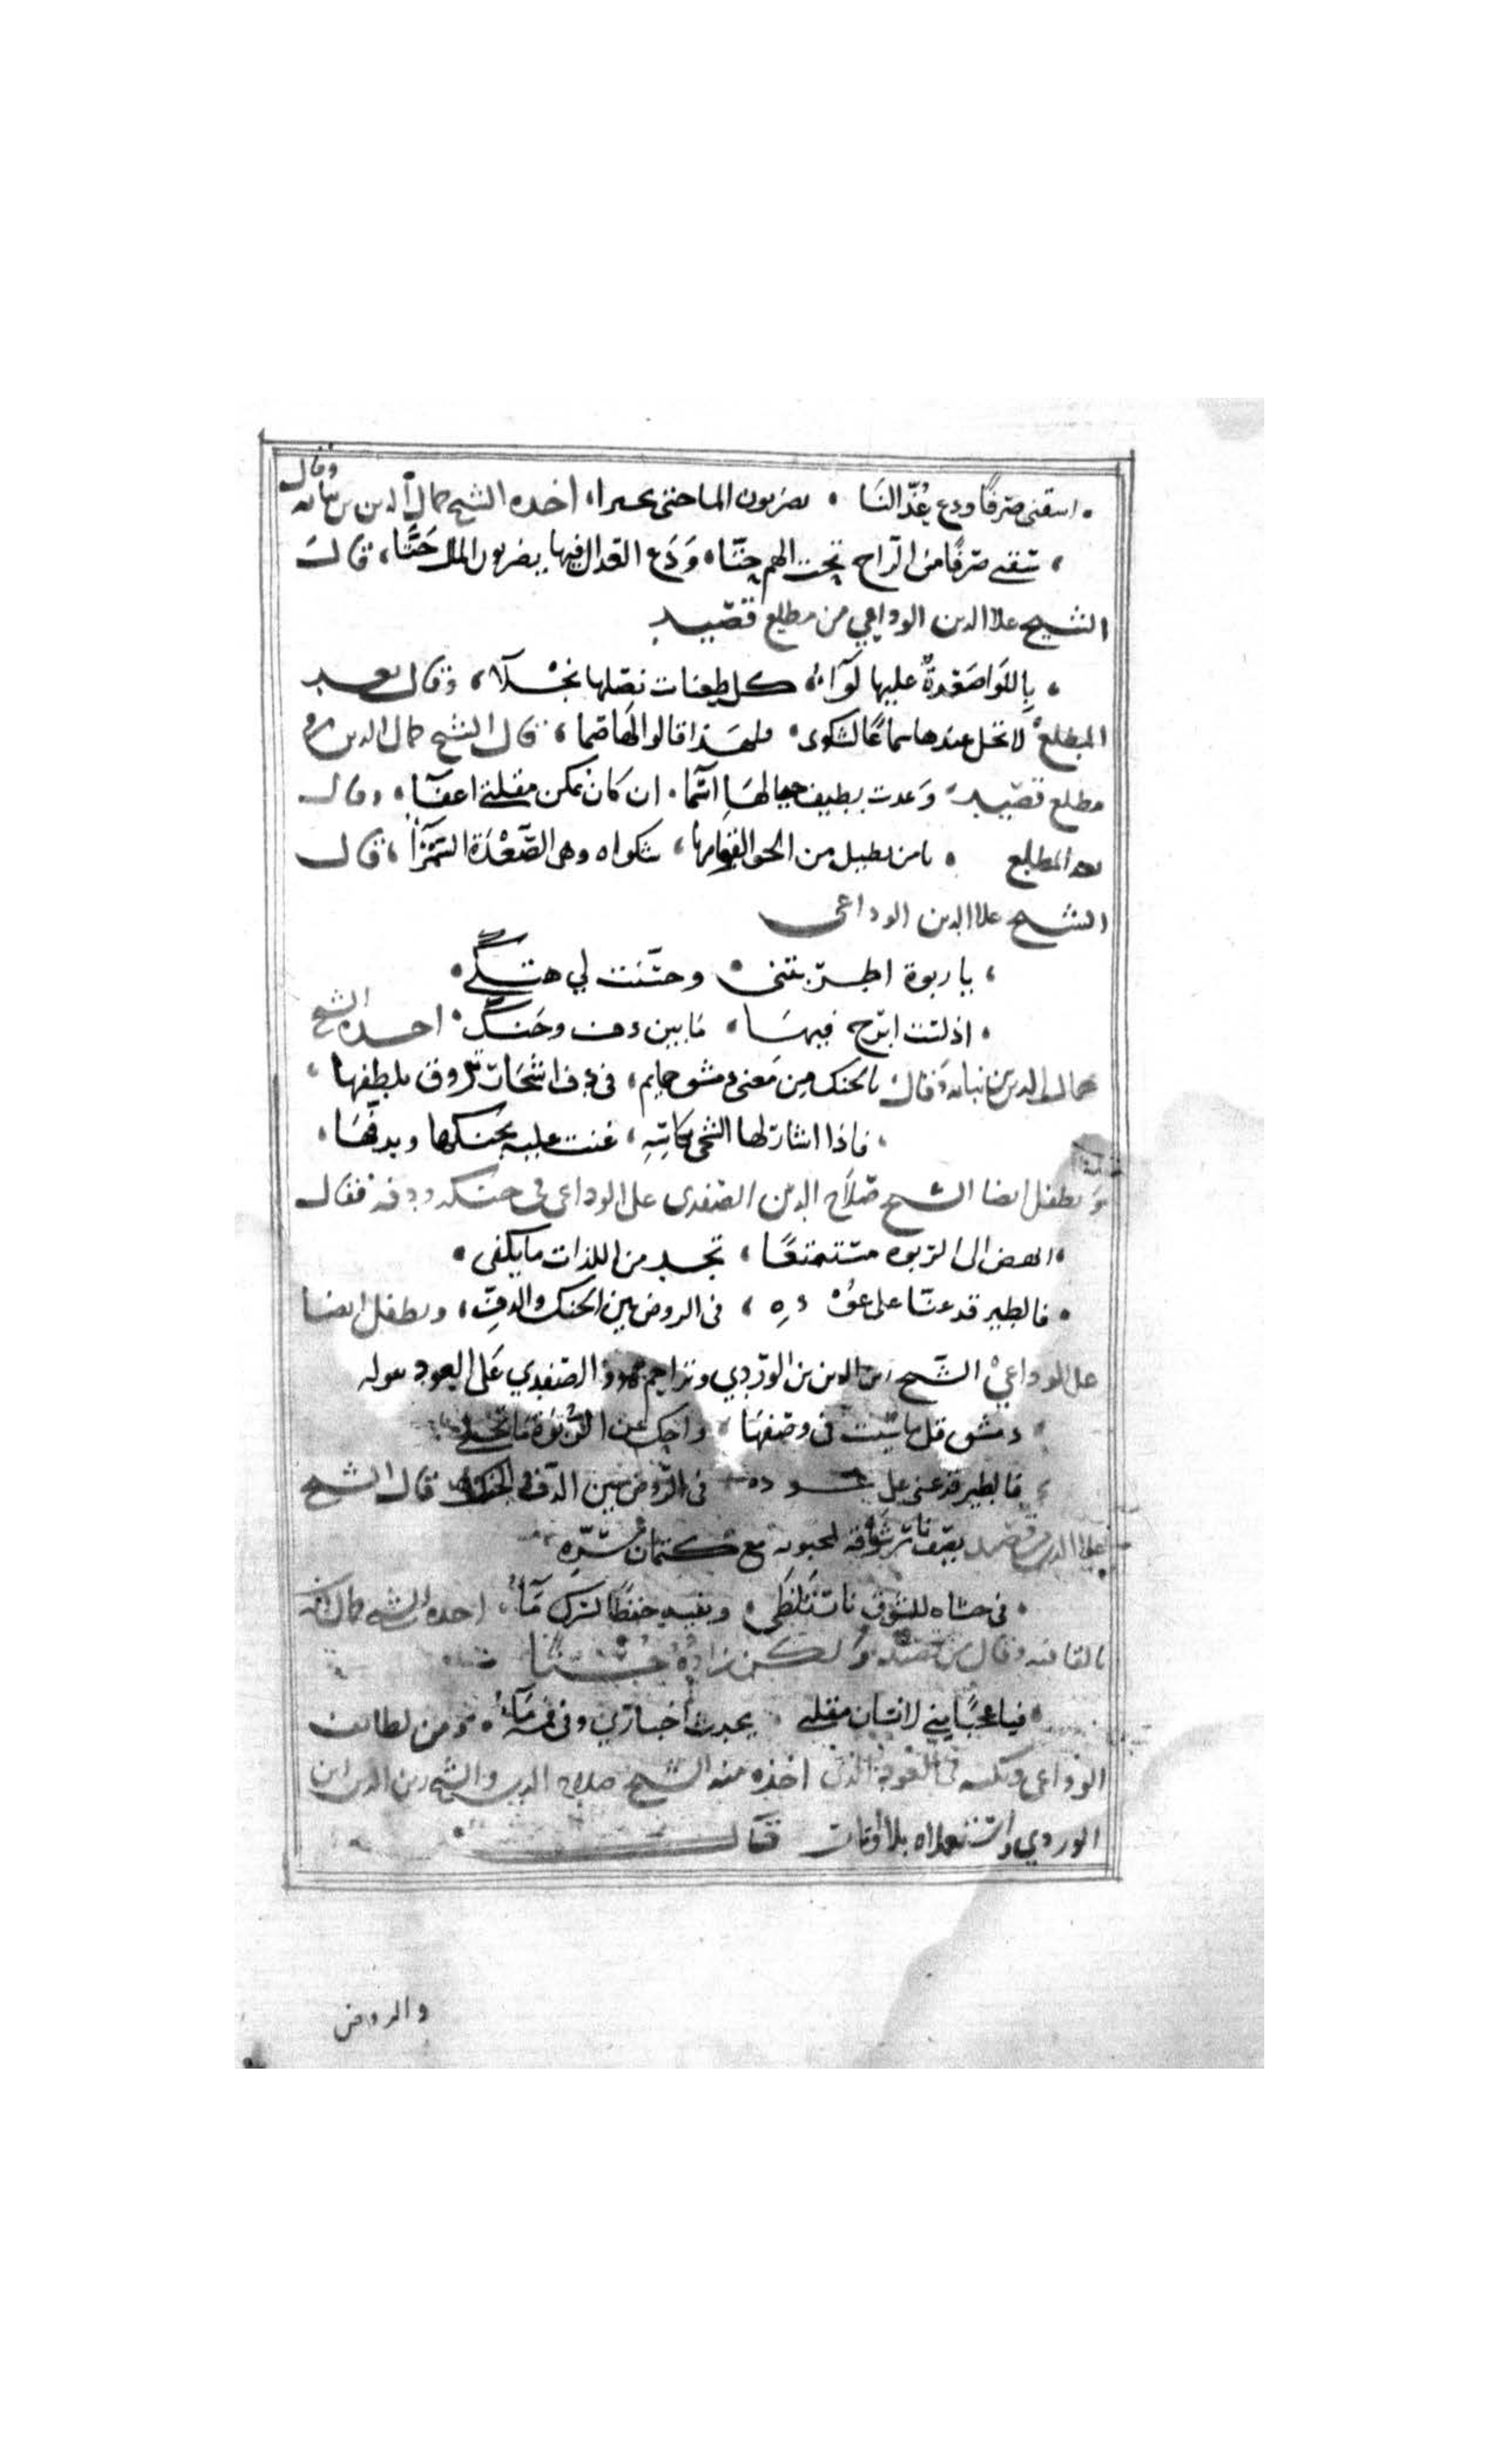 اسقني صرفا ودع عُذّالنا . يضربون الما حتى يحمرا، اخده الشيخ جمال الدين بن نباته وقال
، سقني صرفًا من الراح تحت الهم حتّا، وَدَع العذال فيها يضربون الما حَتَّا، قال
الشيخ علا الدين الوداعي من مطلع قصيد
. باللوا صَعْدةٌ عليها لوآء، كل طعنات نصلها نجلآ، وقال بعد
المطلع لا تخل عندها سماعًا لشكوى . فلهذا قالوا لها صما، قال الشيخ جمال الدين من
مطلع قصيد وَعدت بطيف خيالها اسما . ان كان يمكن مقلتي اغفآ، وقال
بعد المطلع . يا من يطيل من الجوا لقوامها، شكواه وهي الصَّعْدَة السَّمْرَآ، قال
الشيخ علا الدين الوداعي
، يا ربوة اطربتني . وحسّنت لي هتكي .
. اذ لست ابرح فيها، ما بين دف وجَنك . اخده الشيخ
جمال الدين بن نباته وقال يا لجنك من مَعنى دمشق حمايم، في دف اشجار تروق بلطفها،
، فاذا اشار لها الشجي بكاسِهِ، غنت عليه بجنكها وبدفّها،
وتطفل ايضا الشيخ صَلاح الدين الصفدي على الوداعي في جنكه ودفه فقال
. انهض الى الربوه مستمتعًا، تجد من اللذات ما يكفي .
. فالطير قد غنّا على عُوْ دِهِ، في الروض بين الجنك والدفِّ، وتطفل ايضا
على الوداعيْ الشيخ زين الدين بن الورّدي وتزاحم هو والصفدي على العود بقوله
دمشق قل ما شيت في وصفها . واحك عن الرَّبْوة ما تحكي
فالطير قد غنى على عـــو ده في الرّوض بين الدّف والجنك قال الشيخ
علا الدين من قصيد يصف نار شوقه لمحبوبه مع كتمان سرّه
. في حشاه للشوق نار تَلَظَّى، وبفيه حفظًا لسرك مَآءُ، اخده الشيخ جمال الدين
بالقافيه وقال من قصيد ولكن زاده حُسْنًا
. فيا عجبًا يبني لانسان مقلتي . يحدث اخباري وفي فمه مَآءُ، ومن لطايف
الوداعي ونكته في العود الذي اخذه منه الشيخ صلاح الدين والشيخ زين الدين ابن
الوردي واستعملاه بلا اوتار قال
والروض